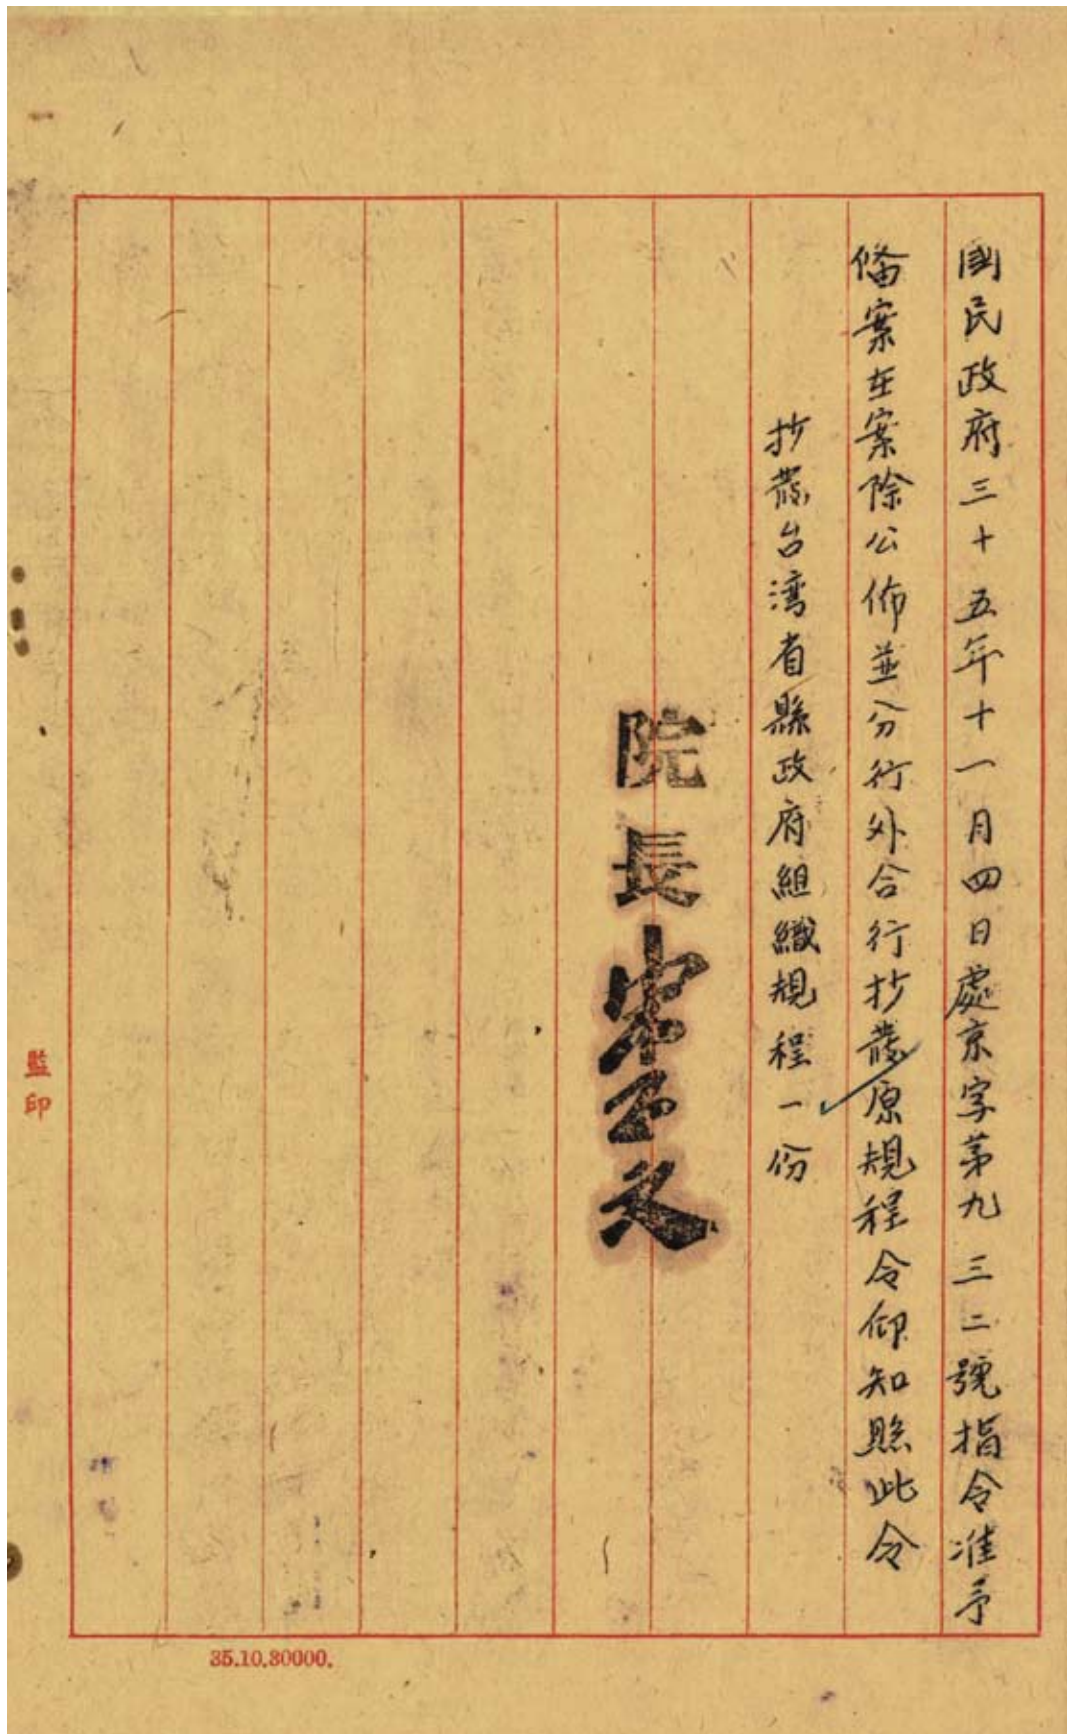 國民政府三十五年十一月四日處京字苐九三二號指令准予
俻案在案除公佈並分行外合行抄發原規程令仰知照此令
抄發台湾省縣政府組織規程一份
院長宋子文
監印
35.10.30000.